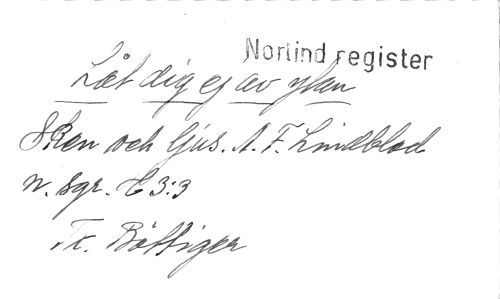 Norlind register
Låt dig ej av ytan
Sken och ljus. A. F. Lindblad
n. sgr. E 3:3
Tx. Böttiger